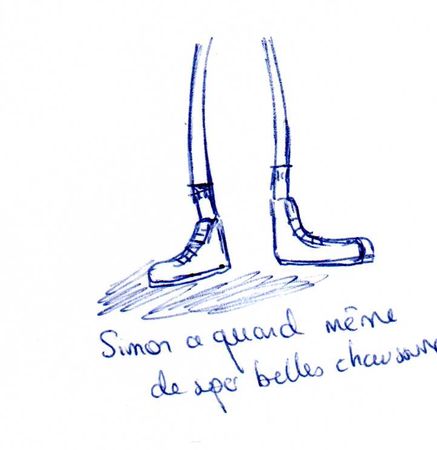 Simon a quand même
de super belles chaussure